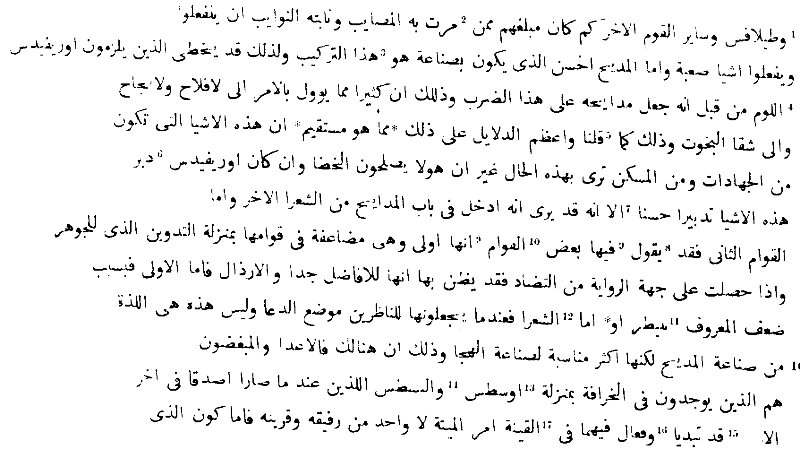 1 وطيلافس وساير القوم الاخر كم كان مبلغهم ممن 2 مرت به المصايب ونابته النوايب ان ينفعلوا
ويفعلوا اشيا صعبة واما المديح احسن الذى يكون بصناعة هو 3 هذا التركيب ولذلك قد يخطى الذين يلزمون اوريفيدس
4 اللوم من قبل انه جعل مدايحه على هذا الضرب وذلك ان كثيرا مما يوول بالامر الى لافلاح ولانجاح
والى شقا البخوت وذلك كما 5 قلنا واعظم الدلايل على ذلك *مما هو مستقيم* ان هذه الاشيا التى تكون
من الجهادات ومن المسكن ترى بهذه الحال غير ان هولا يصلحون الخطا وان كان اوريفيدس 6 دبر
هذه الاشيا تدبيرا حسنا 7 الا انه قد يرى انه ادخل فى باب المدايح من الشعرا الاخر واما
القوام الثانى فقد 8 يقول 9 فيها بعض 10 القوام 9 انها اولى وهى مضاعفة فى قوامها بمنزلة التدوين الذى للجوهر
واذا حصلت على جهة الرواية من التضاد فقد يظن بها انها للافاضل جدا والارذال فاما الاولى فبسبب
ضعف المعروف 11 او* اما 12 الشعرا فعندما يجعلونها للناظرين موضع الدعا وليس هذه هى اللذة
من صناعة المديح لكنها اكثر مناسبة لصناعة الهجا وذلك ان هنالك فالاعدا والمبغضون
هم الذين يوجدون فى الخرافة بمنزلة 13 اوسطس 14 عند ما صارا اصدقا فى اخر
الا 15 قد تبديا 16 وفعال فيهما فى 17 القينة امر الميتة لا واحد من رفيقه وقرينه فاما كون الذى